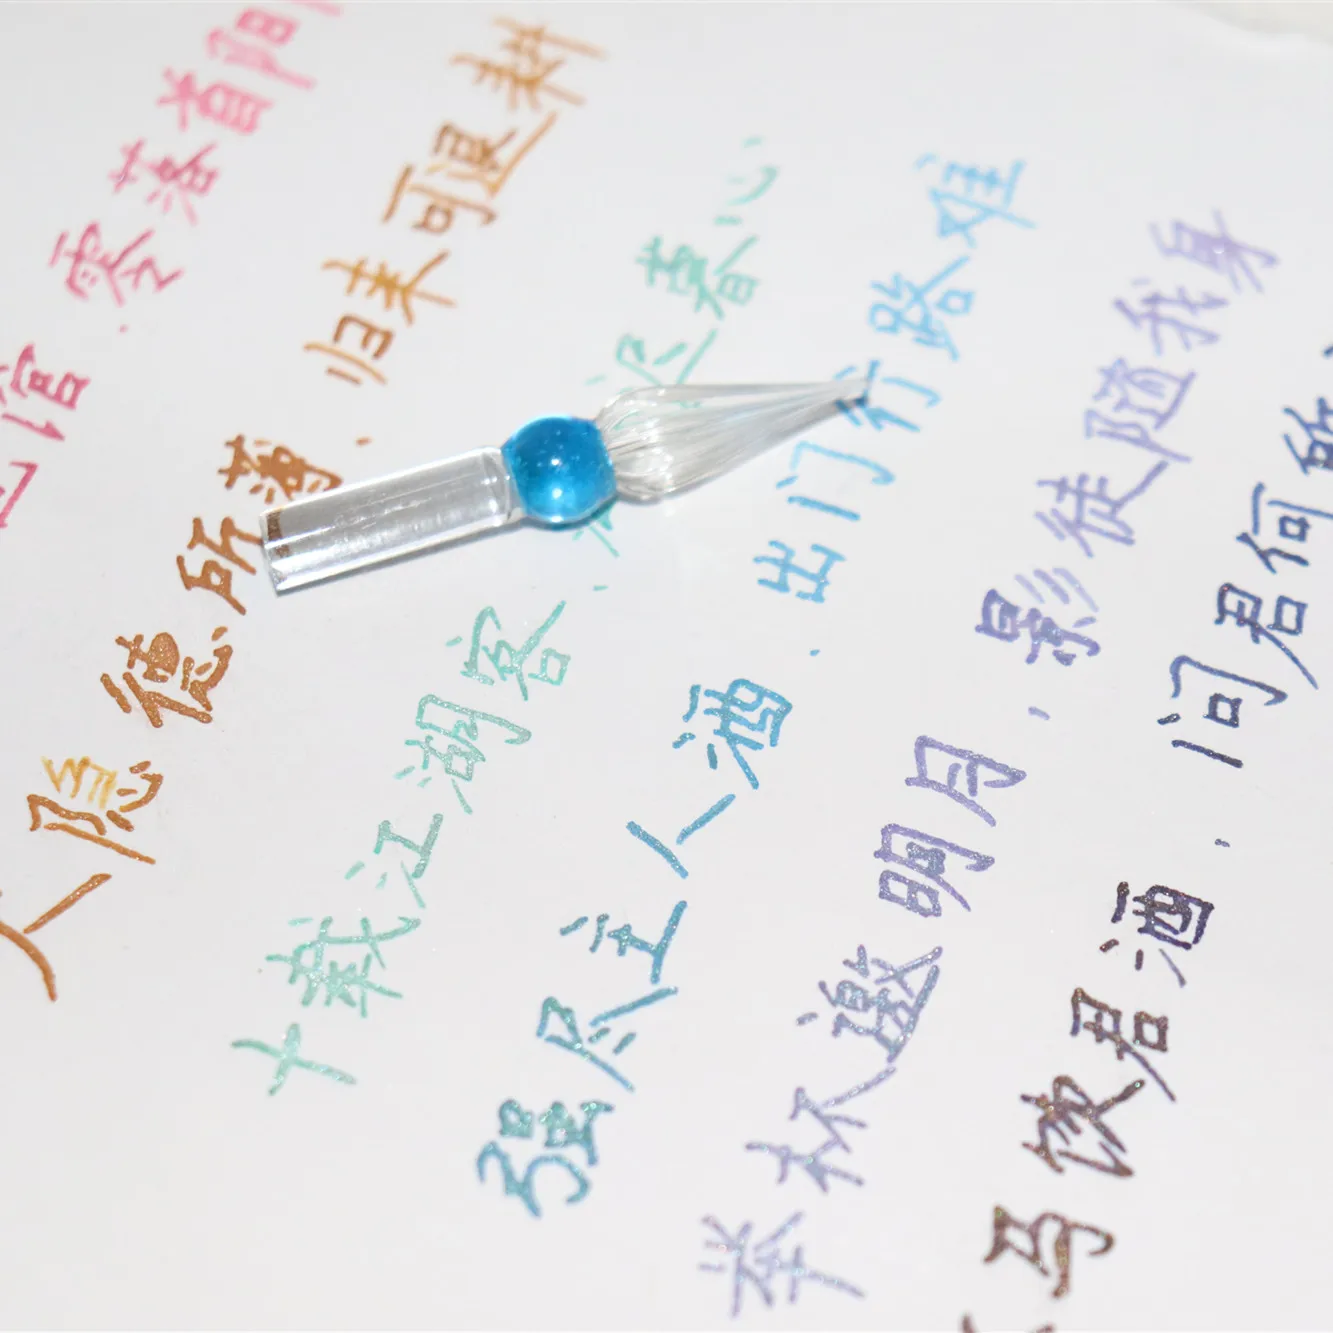 馆.零落首阳
人隐德所薄.归来可退耕
十载江湖客.迟暮心
强尽主人酒.出门行路难
举杯邀明月,影徒随我身
马饮君酒,问君何所